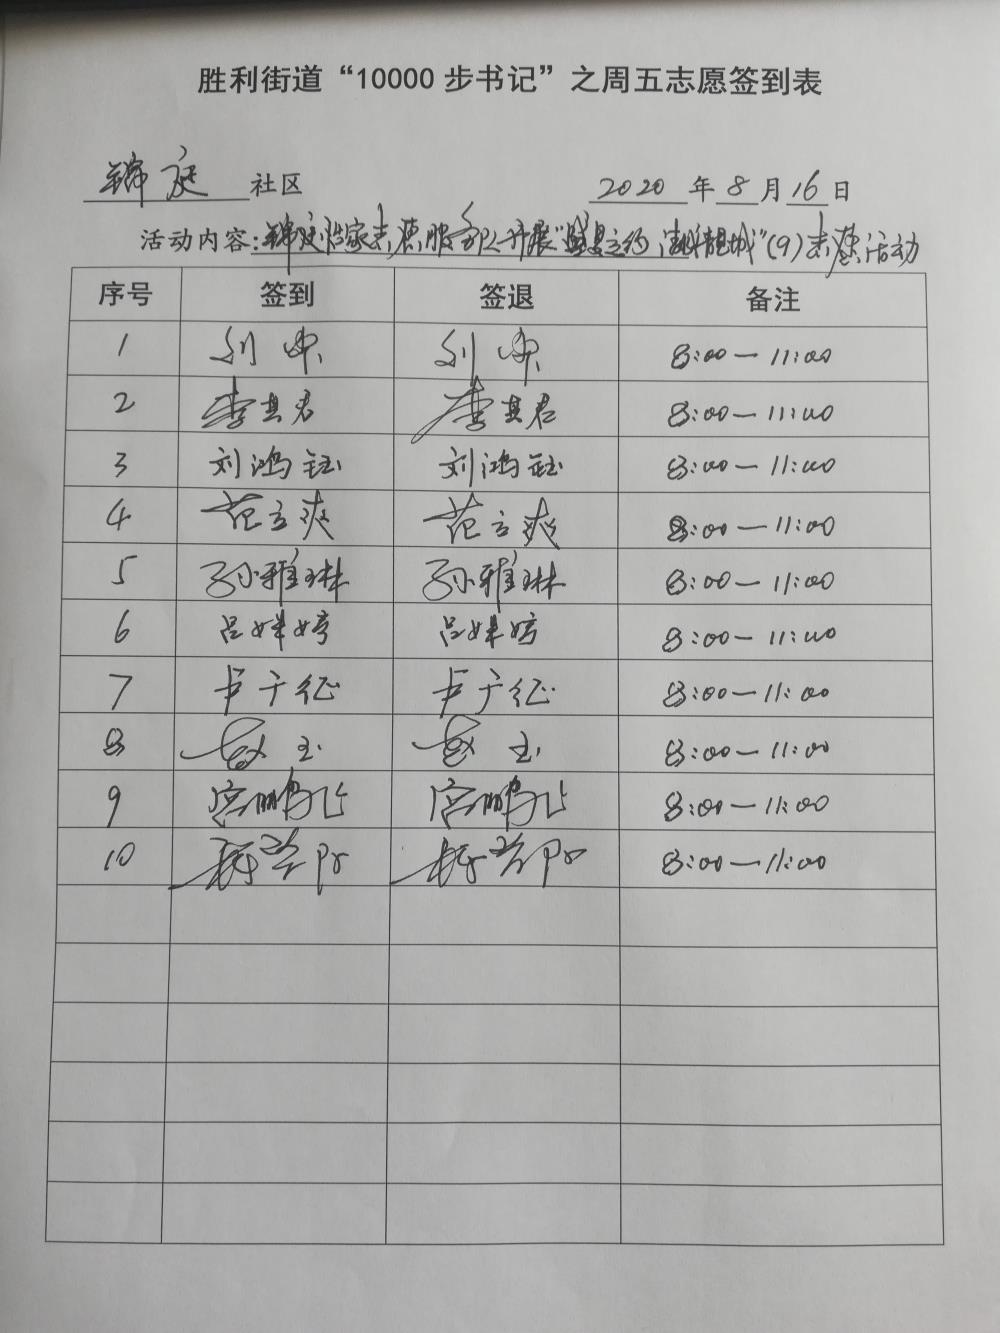 胜利街道“10000步书记”之周五志愿签到表
锦庭 社区 2020 年 8 月 16 日
活动内容：锦庭 家志愿服务队开展“盛夏之约， 龙城”(9)志愿活动
序号 签到 签退 备注
1 刘 刘 8:00—11:00
2 李其君 李其君 8:00—11:00
3 刘鸿钰 刘鸿钰 8:00—11:00
4 范立爽 范立爽 8:00—11:00
5 孙雅琳 孙雅琳 8:00—11:00
6 吕婵婷 吕婵婷 8:00—11:00
7 卢于征 卢于征 8:00—11:00
8 赵玉 赵玉 8:00—11:00
9 宫鹏 宫鹏 8:00—11:00
10 8:00—11:00